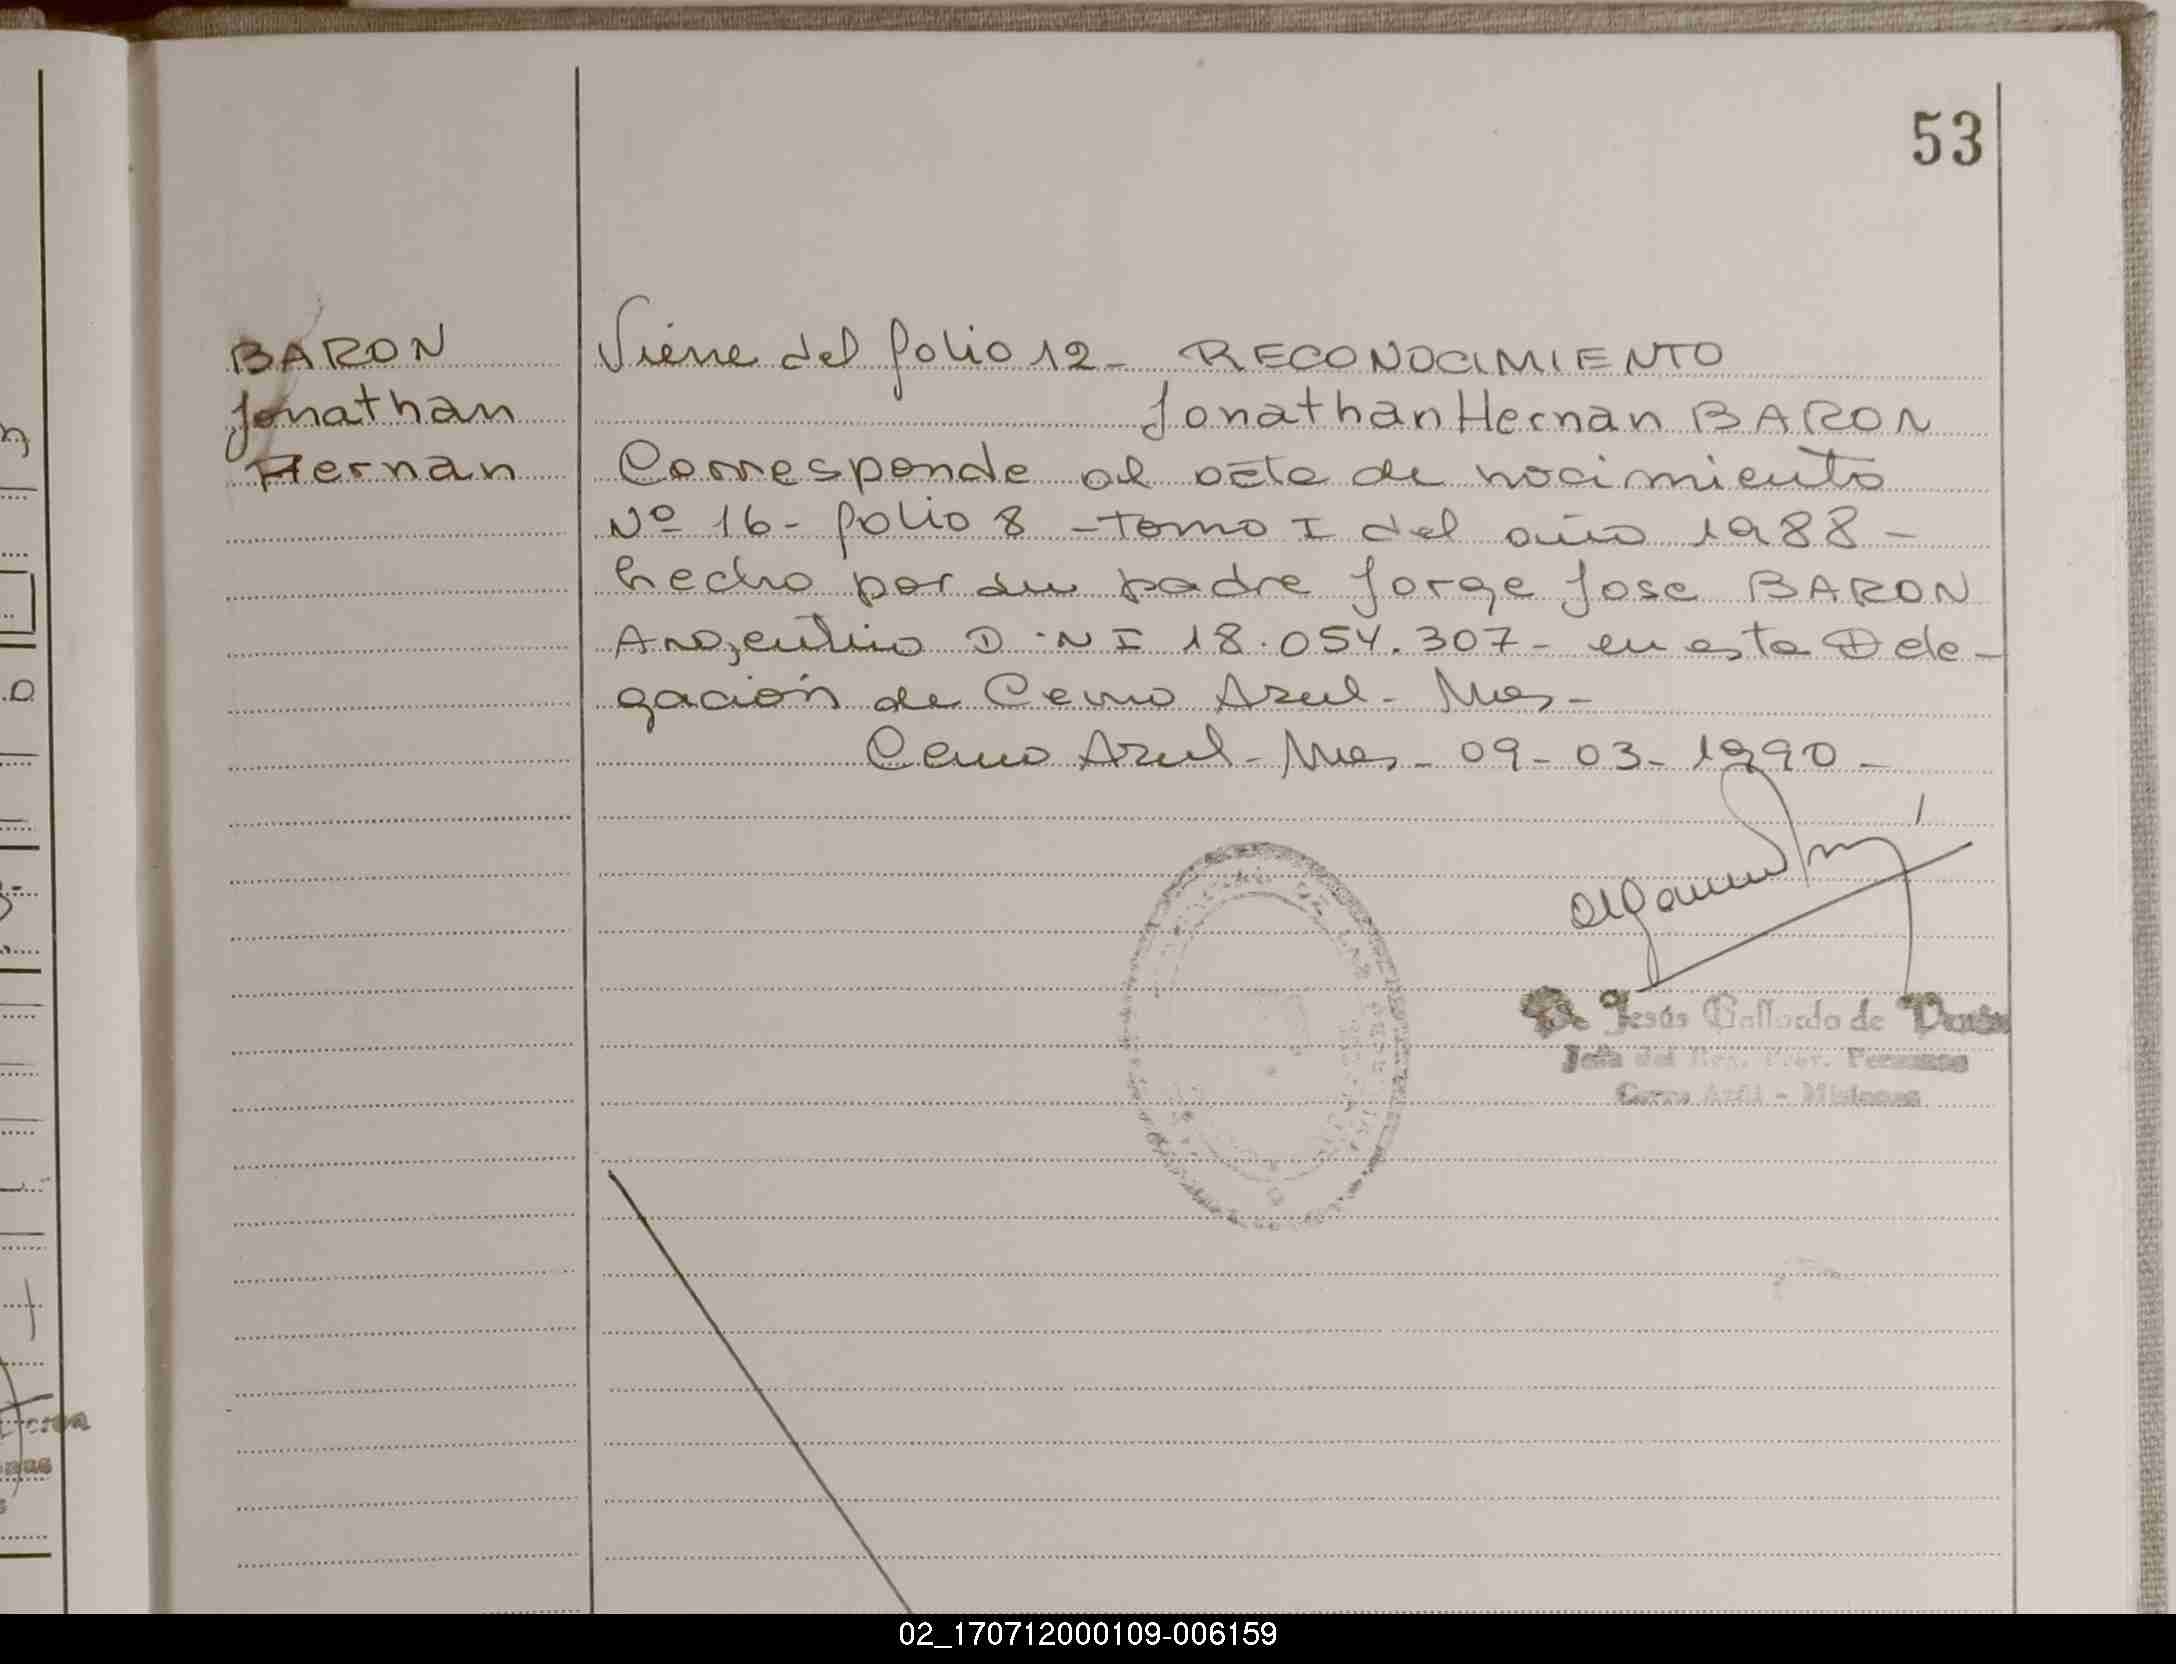 53
BARON
Jonathan
Hernan
Viene del folio 12 - RECONOCIMIENTO
Jonathan Hernan BARON
Corresponde al acta de nacimiento
Nº 16 - folio 8 - Tomo I del año 1988 -
hecho por su padre Jorge Jose BARON
Argentino D.N I 18.054.307 - en esta Dele-
gación de Cerro Azul - Mnes -
Cerro Azul - Mnes - 09 - 03 - 1990 -
Jesús Gallardo de
Jefa del Reg. Prov. Personas
Cerro Azúl - Misiones
02_170712000109-006159